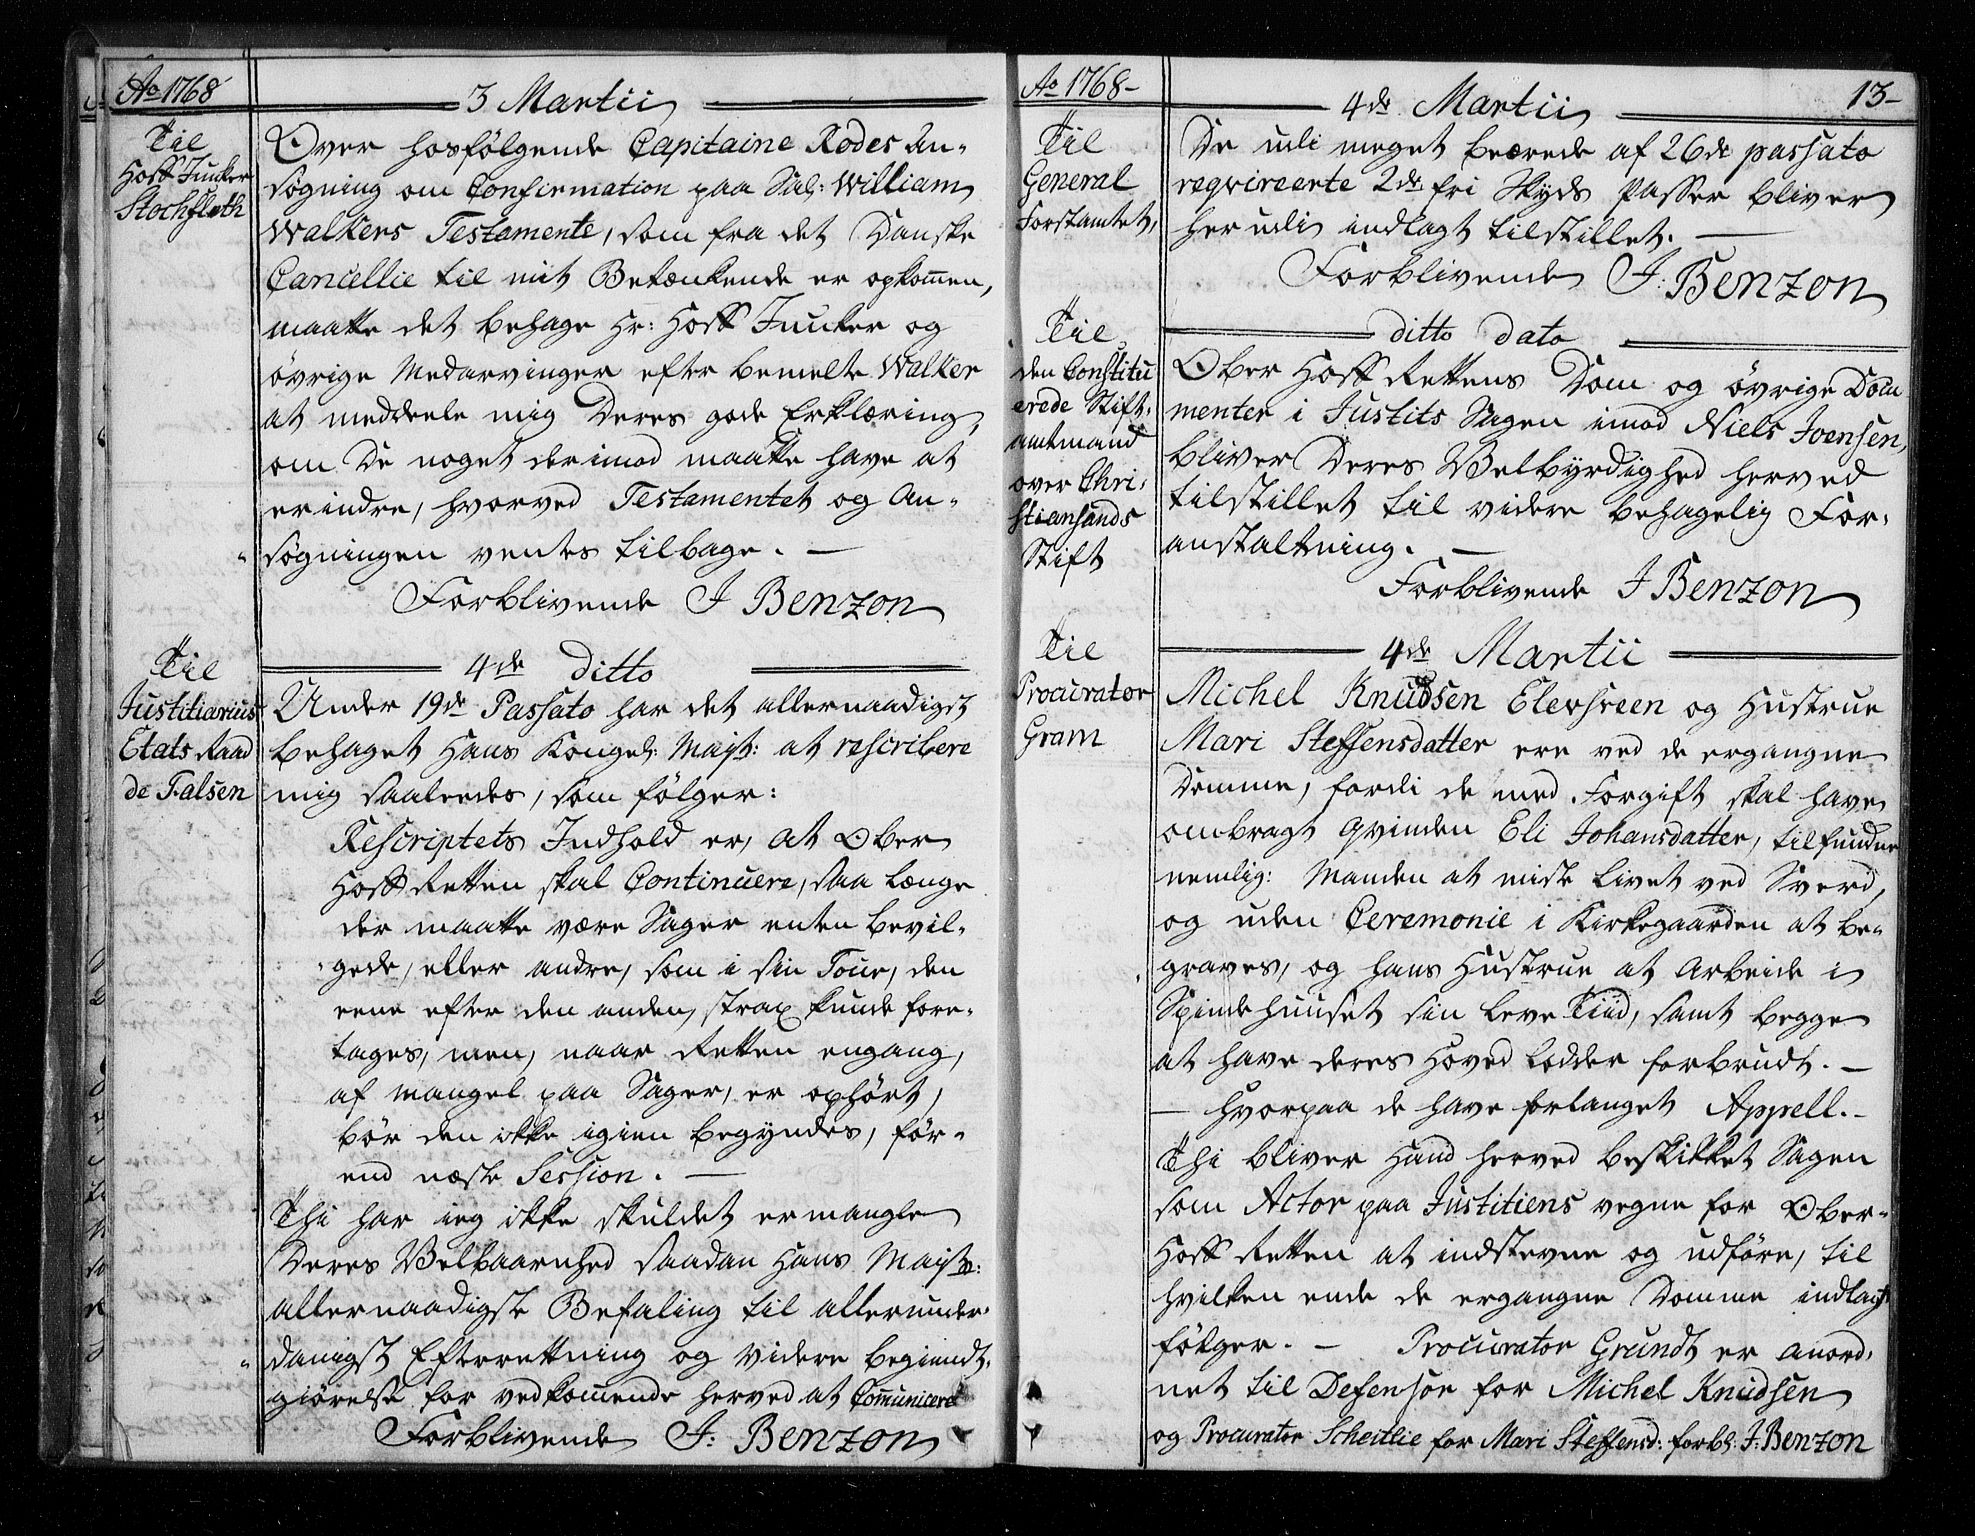 Ao 1768
3 Martii
Til
Hoff Juncker
Stochfleth
Over hosfølgende Capitaine Rodes An-
søgning om Confirmation paa Sal: William
Walkers Testamente, som fra det Danske
Cancellie til mit Betænkende er opkommen,
maatte det behage Hr: Hoff Juncker og
øvrige Medarvinger efter bemelte Walker
at meddeele mig Deres gode Erklæring,
om De noget derimod maatte have at
erindre, hvorved Testamentet og An-
søgningen ventes tilbage. —
Forblivende J Benzon
4de ditto
Til
Justitiarius
Etats Raad
de Falsen
Under 19de Passato har det allernaadigst
behaget Hans Kongel: Mayst: at rescribere
mig saaleedes, som følger:
Rescriptets Indhold er, at Ober
Hoff Retten skal Continuere, saa længe
der maatte være Sager enten bevil-
gede, eller andre, som i sin Tour, den
eene efter den anden, strax kunde fore-
tages, men, naar Retten engang,
af mangel paa Sager, er ophørt,
bør den ikke igien begyndes, før-
end næste Session. —
Thi har ieg ikke skuldet ermangle
Deres Velbaarnhed saadan Hans Mayst:
allernaadigste Befaling til allerunder-
danigst Efterrettning og videre begiendt-
giørelse for vedkommende herved at Communicere
Forblivende J: Benzon
Ao 1768-
4de Martii
13-
Til
General
Forstamtet,
De udi meget beærede af 26de passato
reqvireerte 2de fri Skyds Passer bliver
herudi indlagt tilstillet. —
Forblivende J: Benzon
ditto dato
Til
den Constitu
erede Stift-
amtmand
over Chri-
stiansands
Stift
Ober Hoff Rettens Dom og øvrige Docu
menter i Justits Sagen imod Niels Joensen,
bliver Deres Velbyrdighed herved
tilstillet til videre behagelig For-
anstaltning. —
Forblivende J Benzon
4de Martii
Til
Procurator
Gram
Michel Knudsen Elevsreen og Hustrue
Mari Steffensdatter ere ved de ergangne
Domme, fordi de med Forgift skal have
ombragt Qvinden Eli Johansdatter, tilfundne
nemlig: Manden at miste Livet ved Sverd,
og uden Ceremonie i Kirkegaarden at be-
graves, og hans Hustrue at Arbeide i
Spindehuuset sin Leve Tiid, samt begge
at have deres Hoved Lodder forbrudt. —
— Hvorpaa de have forlanget Appell. -
Thi bliver Hand herved beskikket Sagen
som Actor paa Justitiens vegne for Ober-
Hoff Retten at indstevne og udføre, til
hvilken ende de ergangne Domme indlagt
følger. — Procurator Grundt er anord-
net til Defensor for Michel Knudsen
og Procurator Scheitlie for Mari Steffensd: forbl: J: Benzon